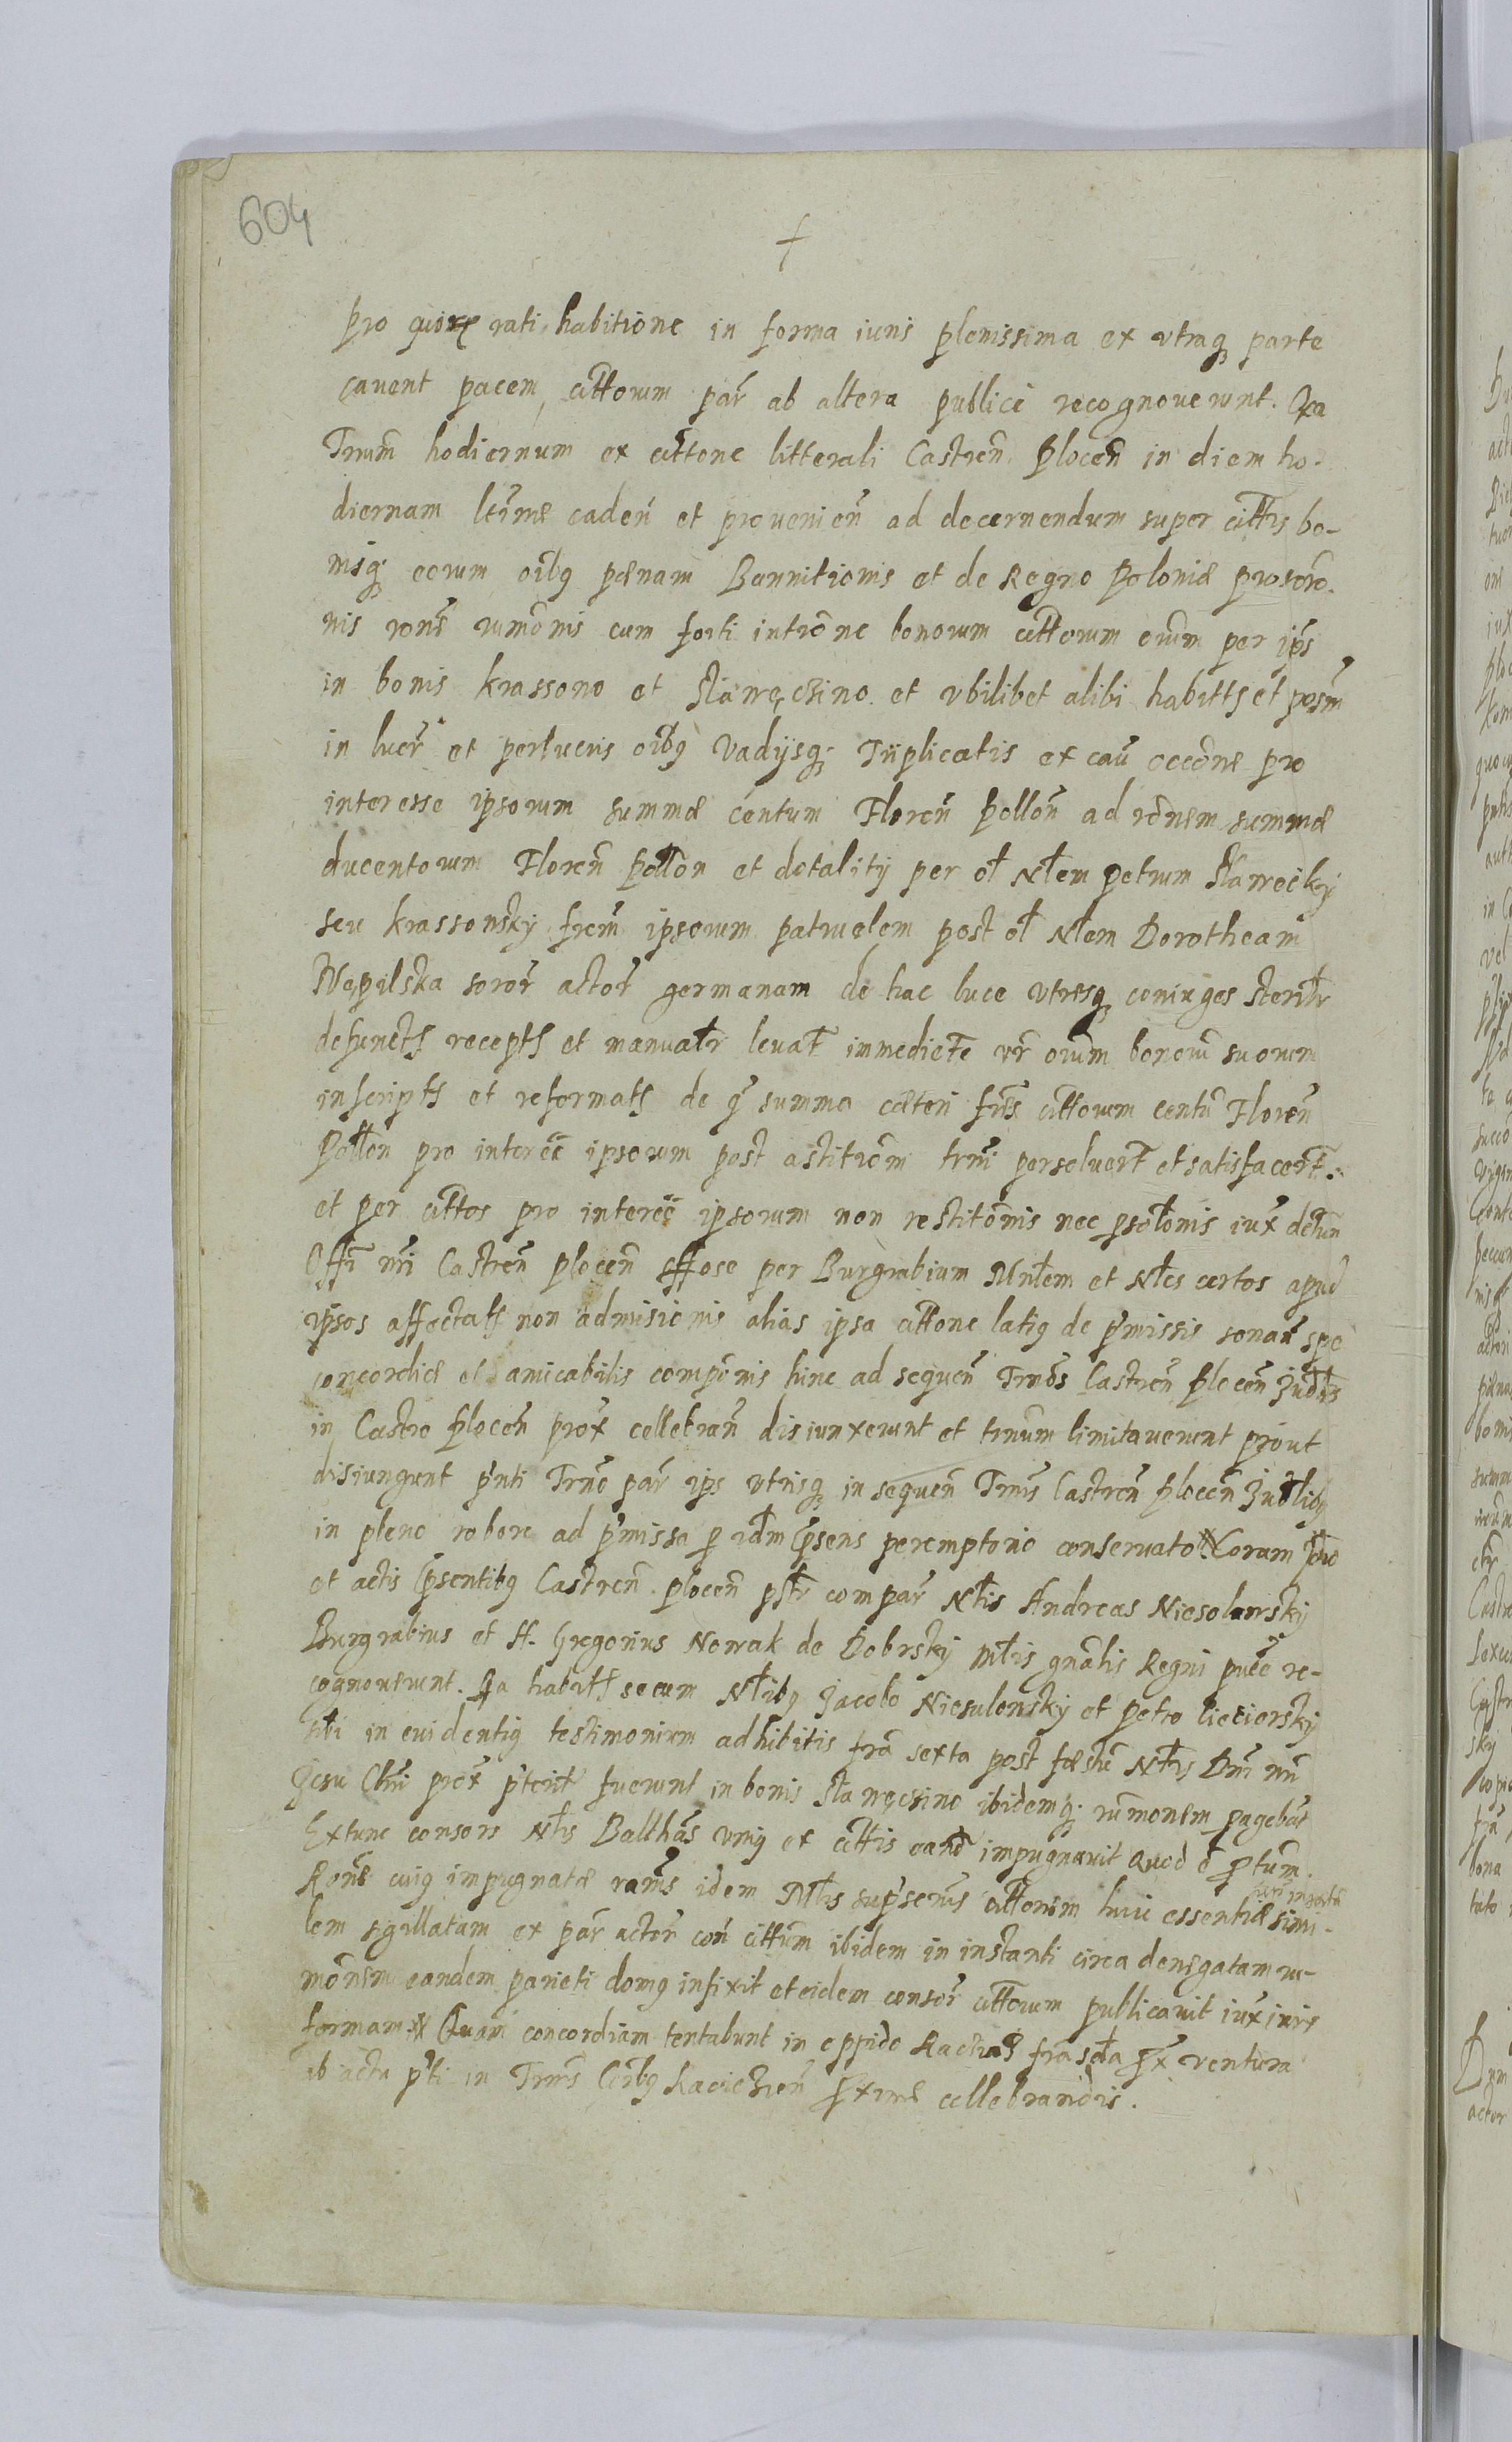 604
pro quorum rati habitione in forma iuris plenissima ex vtraq parte
cauent pacem cittorum par ab altera publice recognouerunt. Qa
Trnum hodiernum ex cittone litterali Castren Plocen in diem ho-
diernam ltime caden et prouenien ad decernendum super cittis bo-
nisq eorum oibq pænam Bannitionis et de Regno Poloniæ proscro-
nis rone rumonis cum forti introne bonorum cittorum eorum per ips
in bonis Krassono et Stawęczino et vbilibet alibi habitts et posm
in lucr et perlucris oibq vadijsq Triplicatis ex cau occone pro
interesse ipsorum summæ centum Floren Pollon ad ronem summæ
ducentorum Floren Pollon et dotalitij per ol Nlem Petrum Stawecky
seu Krassonsky frem ipsorum patruelem post ol Nlem Dorotheam
soror actor germanam de hac luce vtresq coniuges sterilr
defuncts recepts et manualr leuat immediete vr oium bonoru suorum
inscripts et reformats de q summa cæteri fres cittorum centu Floren
Pollon pro interee ipsorum post astitiom trmi persoluert et satisfacert.
et per cittos pro interee ipsorum non restitonis nec psolonis iux detum
Offi nri Castren plocen offose per Burgrabium Mnlem et Nles certos apud
ipsos affectats non admisionis alias ipsa cittone latiq de pmissis sonan spe
concordiæ et amicabilis componis hinc ad sequen Trnos Castren Plocen Judlis
in Castro Plocen prox cellebran disiunxerunt et trnum limitauerunt prout
disiungunt pnti Trno par ips vtrisq in sequen Trnis Castren Plocen Judlibq
in pleno robore ad pmissa p idm psens peremptorio conseruato. Coram Judo
et actis psentibq Castren plocen pstr compar Nlis Andreas Niesolowsky
Burgrabius et H. Gregorius Nowak de Dobrsky Mlis gnalis Regni puce re-
cognouerunt. Qa habits secum Nlibq Jacobo Niesulowsky et Petro
sibi in euidentiq testimonium adhibitis fra sexta post festu Ntis Dni nri
Jesu Chri prox pterit fuerunt in bonis Stawęczino ibidemq rumonem pagebat
Extunc consors Nlis Balthas vniq ex cittis eand impugnauit Quod e ptum.
Rone cuiq impugnatæ idem Mlis cittonem huic essentiæ simi-
lem sigillatam ex par actor con cittum ibidem in instanti circa denegatam ru-
monem eandem parieti domq infixit et eidem consor cittorum publicauit iux iuris
formam. Quam concordiam tentabunt in oppido fra scda px ventura
ab actu pnti in Trnis pxime cellebrandis.